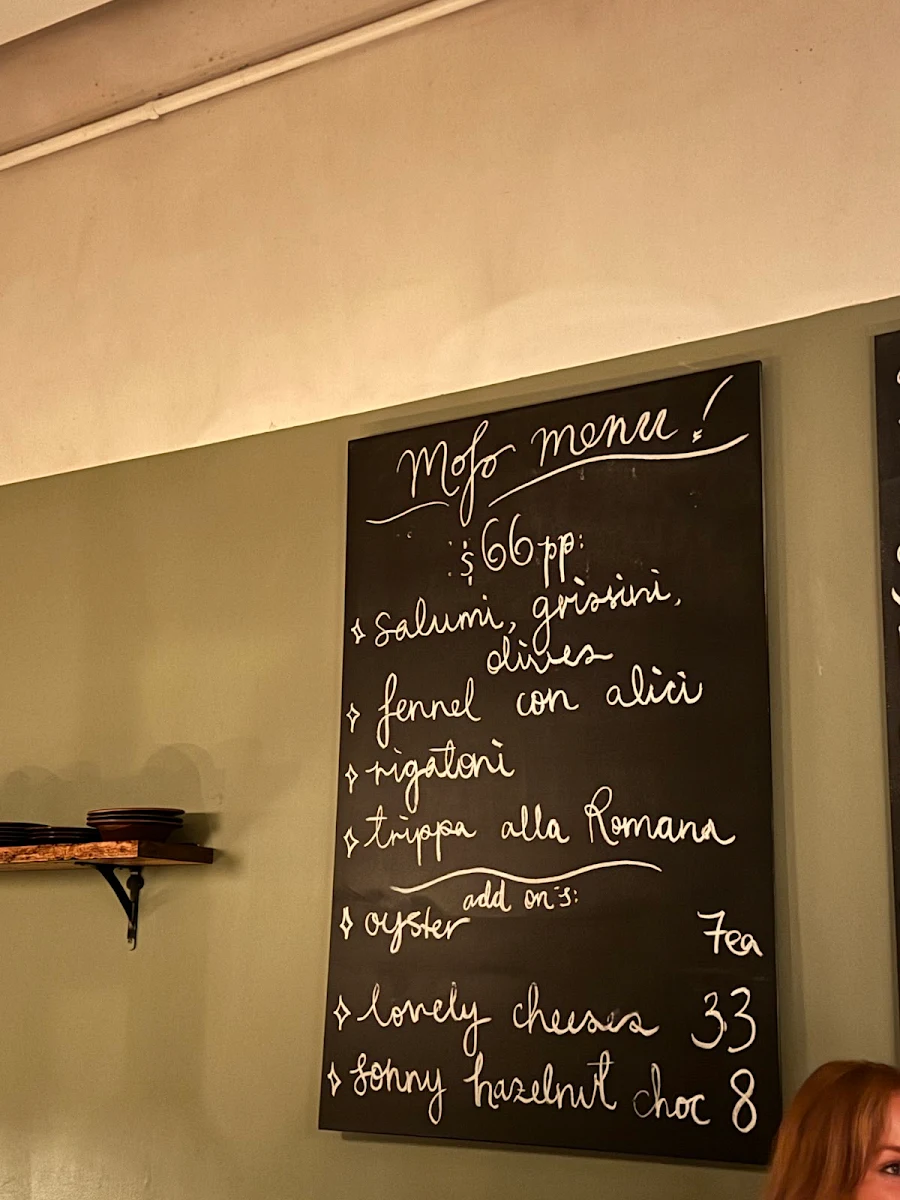 Mofo menu!
$66pp:
salumi, grissini,
olives
fennel con alici
rigatoni
trippa alla Romana
add on's:
oyster 7ea
lovely cheeses 33
sonny hazelnut choc 8